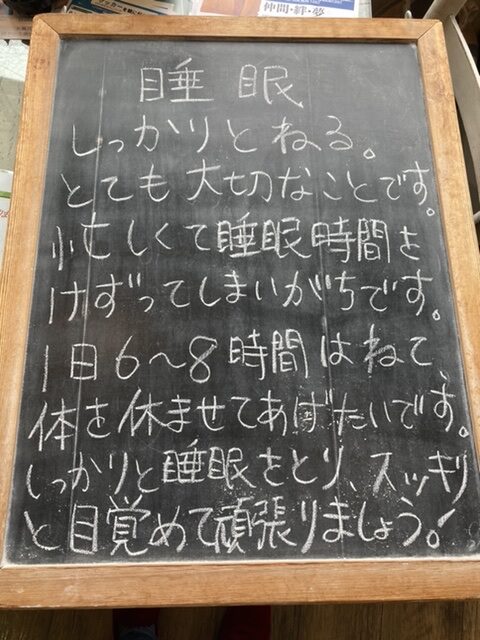 仲間・絆・夢
睡眠
しっかりとねる。
とても大切なことです。
忙しくて睡眠時間を
けずってしまいがちです。
1日6〜8時間はねて、
体を休ませてあげたいです。
しっかりと睡眠をとり、スッキリ
と目覚めて頑張りましょう!